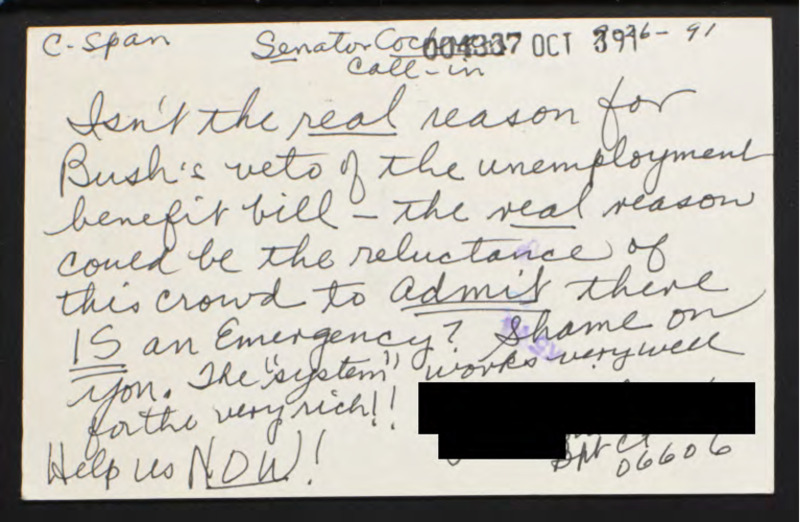 C-Span Senator 004337 OCT 391 26-91
Call-in
Isn't the real reason for
Bush's veto of the unemployment
benefit bill – the real reason
could be the reluctance of
this crowd to admit there
IS an Emergency? Shame on
you. The "system" works very well
for the very rich!!
Help us NOW!
Bpt Ct
06606